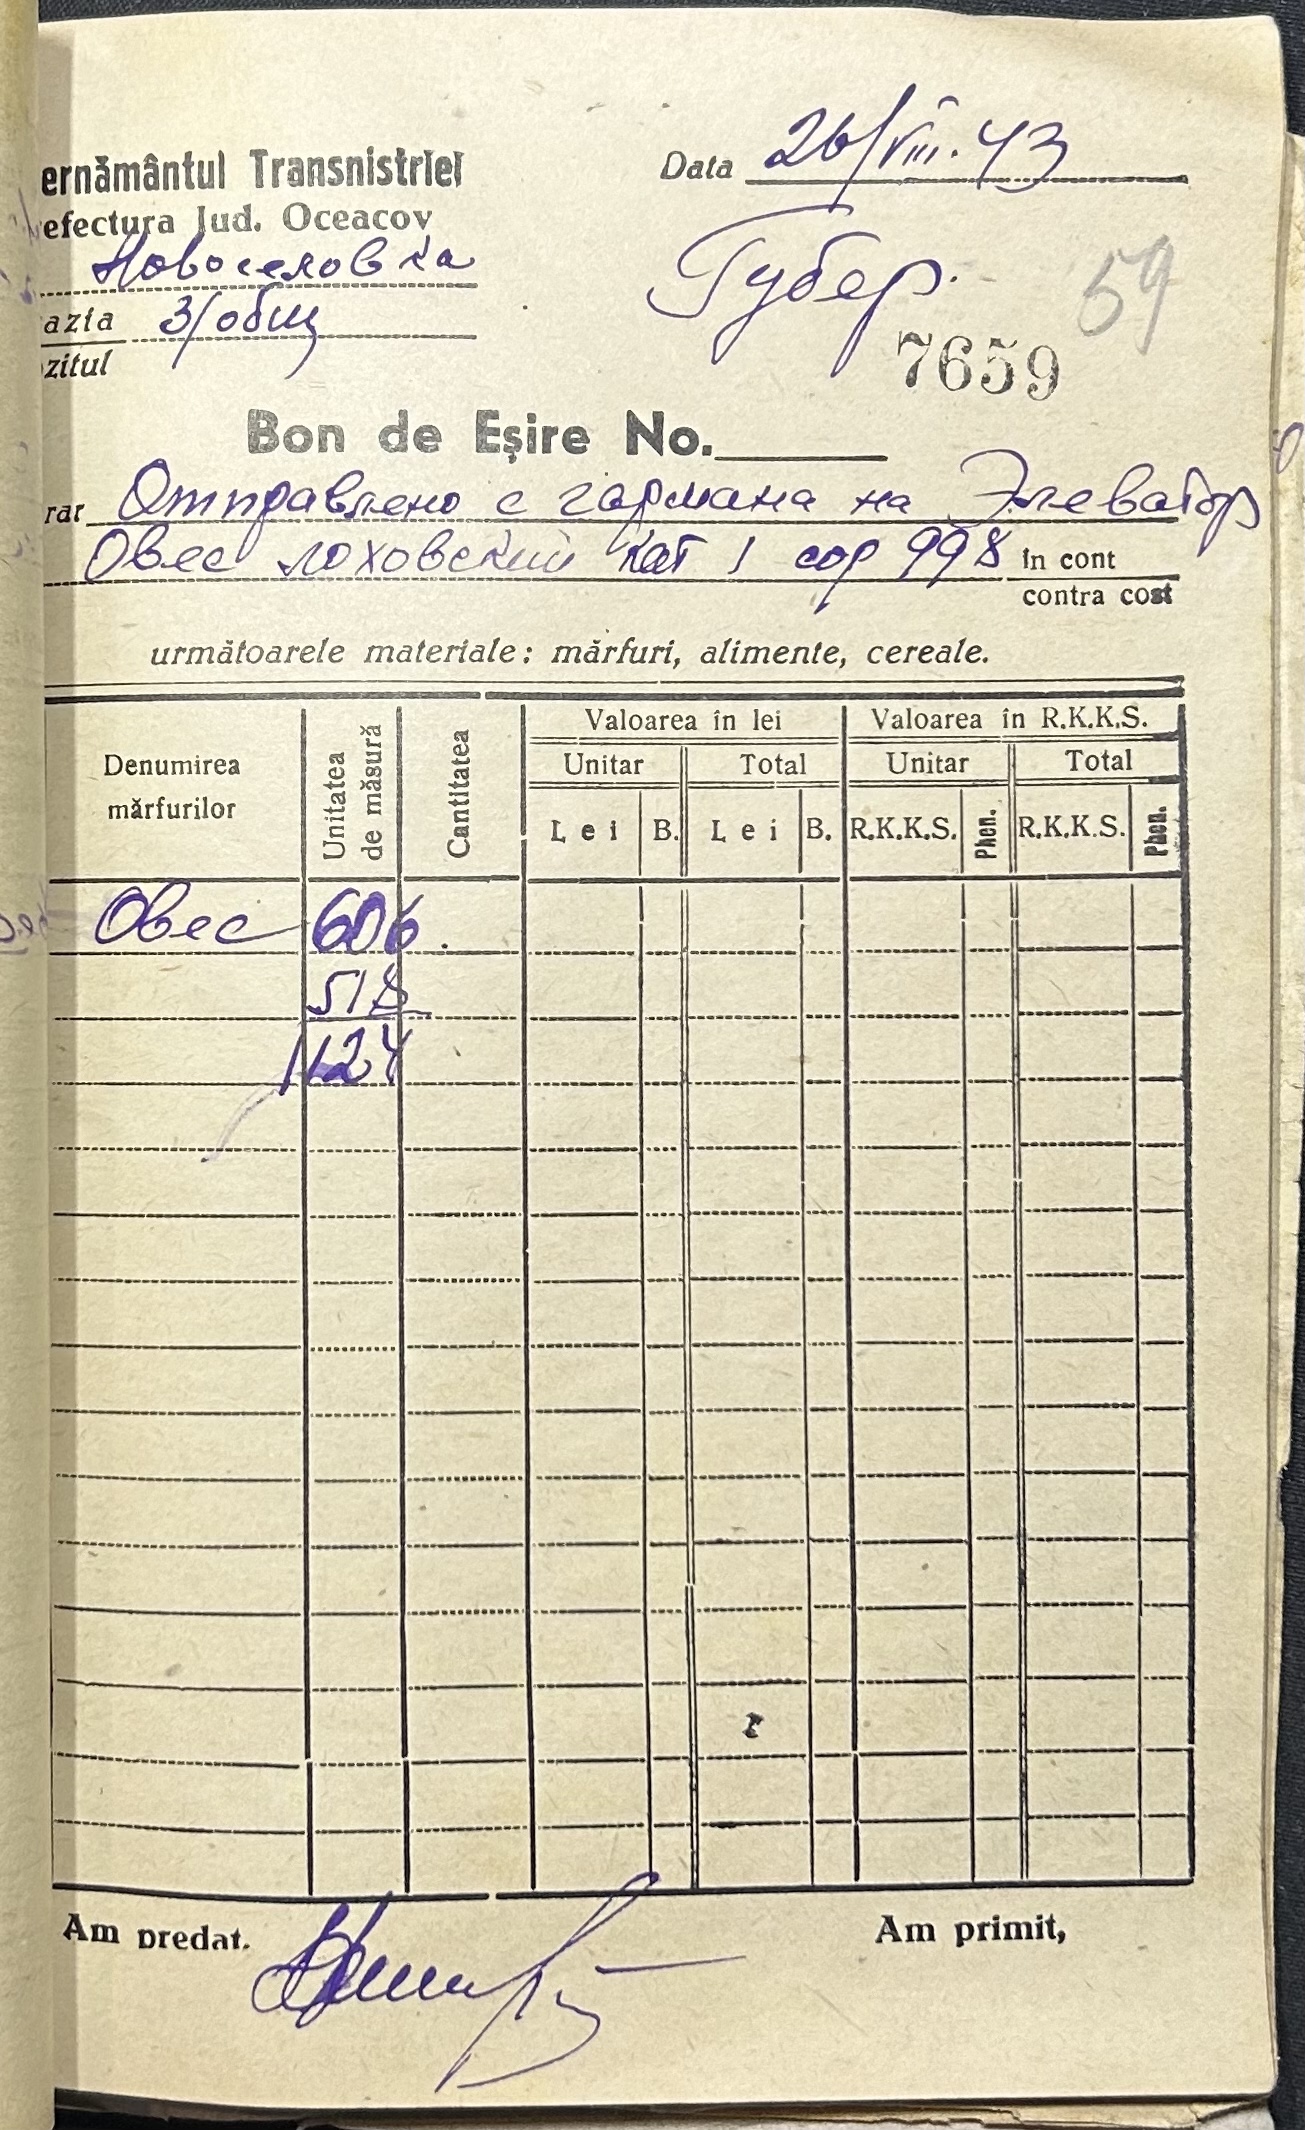 ernământul Transnistriei
Data 26/VIII.43
efectura Jud. Oceacov
Новоселовка
Губер.
59
azia 3/общ
zitul
7659
Bon de Eşire No.
rar Отправлено с гармана на Элеватор
Овес лоховский кат 1 сор 998 în cont
contra cost
următoarele materiale: mărfuri, alimente, cereale.
Denumirea mărfurilor
Unitatea de măsură
Cantitatea
Valoarea în lei
Valoarea în R.K.K.S.
Unitar Total Unitar Total
Lei B. Lei B. R.K.K.S. Phen. R.K.K.S. Phen.
Овес 606
518
1124
Am predat.
Am primit,